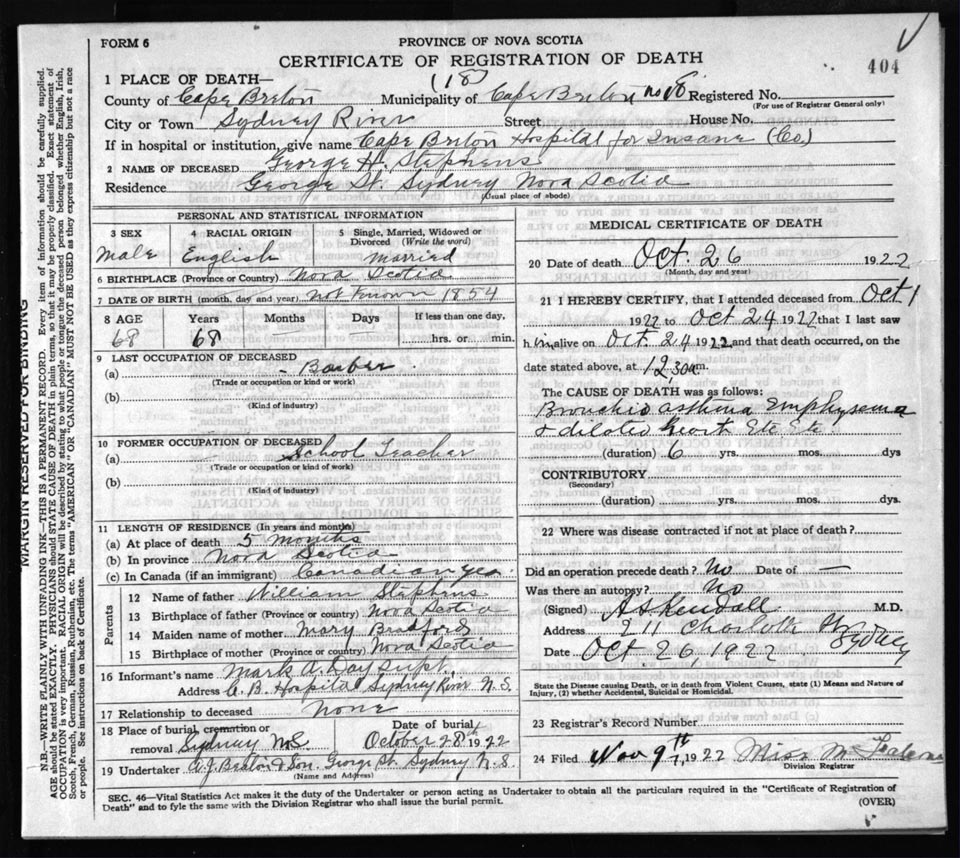 FORM 6
PROVINCE OF NOVA SCOTIA
CERTIFICATE OF REGISTRATION OF DEATH
404
1 PLACE OF DEATH—
(18)
County of Cape Breton Municipality of Cape Breton no 18 Registered No.
(For use of Registrar General only)
City or Town Sydney River Street House No.
If in hospital or institution, give name Cape Breton Hospital for Insane (Co)
2 NAME OF DECEASED George H. Stephens
Residence George St. Sydney Nova Scotia
(Usual place of abode)
PERSONAL AND STATISTICAL INFORMATION
3 SEX 4 RACIAL ORIGIN 5 Single, Married, Widowed or Divorced (Write the word)
Male English Married
6 BIRTHPLACE (Province or Country) Nova Scotia
7 DATE OF BIRTH (month, day and year) not known 1854
8 AGE Years Months Days If less than one day,
68 68 hrs. or min.
9 LAST OCCUPATION OF DECEASED
(a) - Barber
(Trade or occupation or kind or work)
(b)
(Kind of industry)
10 FORMER OCCUPATION OF DECEASED
(a) School Teacher
(Trade or occupation or kind of work)
(b)
(Kind of industry)
11 LENGTH OF RESIDENCE (In years and months)
(a) At place of death 5 months
(b) In province Nova Scotia
(c) In Canada (if an immigrant) Canadian yes
Parents
12 Name of father William Stephens
13 Birthplace of father (Province or country) Nova Scotia
14 Maiden name of mother Mary
15 Birthplace of mother (Province or country) Nova Scotia
16 Informant's name Mark A. Day Supt.
Address C. B. Hospital Sydney River N.S.
17 Relationship to deceased None
18 Place of burial, cremation or removal Sydney N.S. Date of burial October 28th 1922
19 Undertaker A.J. Beaton & Son. George St. Sydney N.S.
(Name and Address)
MEDICAL CERTIFICATE OF DEATH
20 Date of death Oct. 26 1922
(Month, day and year)
21 I HEREBY CERTIFY, that I attended deceased from Oct 1
1922 to Oct 24 1922 that I last saw
him alive on Oct. 24 1922 and that death occurred, on the
date stated above, at 12.30 a m.
The CAUSE OF DEATH was as follows:
Bronchio asthma Emphysema
& dilated heart Etc Etc
(duration) 6 yrs. mos. dys
CONTRIBUTORY
(Secondary)
(duration) yrs. mos. dys.
22 Where was disease contracted if not at place of death?
Did an operation precede death? No Date of —
Was there an autopsy? No
(Signed) A S Kendall M.D.
Address 211 Charlotte St Sydney
Date Oct 26, 1922
State the Disease causing Death, or in death from Violent Causes, state (1) Means and Nature of
Injury, (2) whether Accidental, Suicidal or Homicidal.
23 Registrar's Record Number
24 Filed Nov 9th, 1922 Miss M
Division Registrar
SEC. 46—Vital Statistics Act makes it the duty of the Undertaker or person acting as Undertaker to obtain all the particulars required in the "Certificate of Registration of
Death" and to fyle the same with the Division Registrar who shall issue the burial permit.
(OVER)
MARGIN RESERVED FOR BINDING
N.B.—WRITE PLAINLY WITH UNFADING INK—THIS IS A PERMANENT RECORD. Every item of information should be carefully supplied.
AGE should be stated EXACTLY. PHYSICIANS should STATE CAUSE OF DEATH in plain terms, so that it may be properly classified. Exact statement of
OCCUPATION is very important. RACIAL ORIGIN will be described by stating to what people or tongue the deceased person belonged whether English, Irish,
Scotch, French, German, Russian, Ruthenian, etc. The terms "AMERICAN" OR "CANADIAN" MUST NOT BE USED as they express citizenship but not a race
or people. See instructions on back of Certificate.